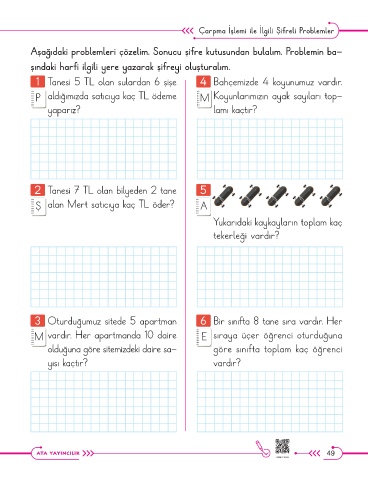 Çarpma İşlemi ile İlgili Şifreli Problemler
Aşağıdaki problemleri çözelim. Sonucu şifre kutusundan bulalım. Problemin ba-
şındaki harfi ilgili yere yazarak şifreyi oluşturalım.
1 Tanesi 5 TL olan sulardan 6 şişe
P aldığımızda satıcıya kaç TL ödeme
yaparız?
2 Tanesi 7 TL olan bilyeden 2 tane
Ş alan Mert satıcıya kaç TL öder?
3 Oturduğumuz sitede 5 apartman
M vardır. Her apartmanda 10 daire
olduğuna göre sitemizdeki daire sa-
yısı kaçtır?
4 Bahçemizde 4 koyunumuz vardır.
M Koyunlarımızın ayak sayıları top-
lamı kaçtır?
5
A
Yukarıdaki kaykayların toplam kaç
tekerleği vardır?
6 Bir sınıfta 8 tane sıra vardır. Her
E sıraya üçer öğrenci oturduğuna
göre sınıfta toplam kaç öğrenci
vardır?
ATA YAYINCILIK
49